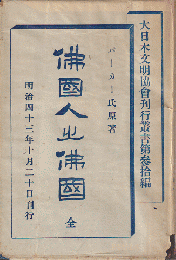 大日本文明協會刊行叢書第參拾編
バーカー氏原著
佛國人之佛國
全
明治四十三年十月二十日刊行